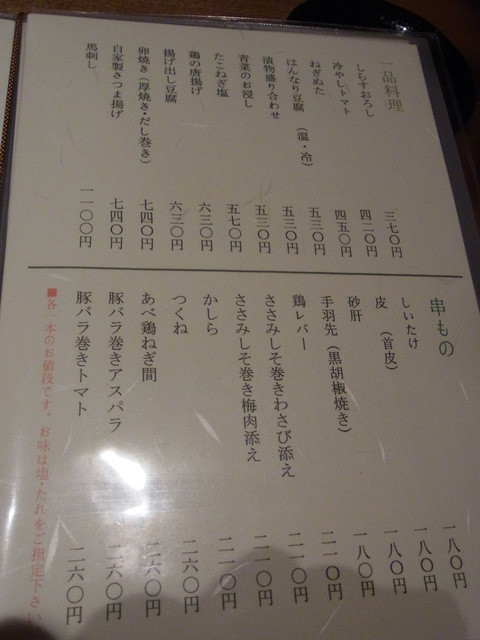 一品料理
しらすおろし 三七〇円
冷やしトマト 四二〇円
ねぎぬた 四五〇円
はんなり豆腐(温・冷) 五三〇円
漬物盛り合わせ 五三〇円
青菜のお浸し 五三〇円
たこねぎ塩 五七〇円
鶏の唐揚げ 六三〇円
揚げ出し豆腐 六三〇円
卵焼き(厚焼き・だし巻き) 七四〇円
自家製さつま揚げ 七四〇円
馬刺し 一一〇〇円
串もの
しいたけ 一八〇円
皮(首皮) 一八〇円
砂肝 一八〇円
手羽先(黒胡椒焼き) 一八〇円
鶏レバー 二一〇円
ささみしそ巻きわさび添え 二一〇円
ささみしそ巻き梅肉添え 二一〇円
かしら 二一〇円
つくね 二六〇円
あべ鶏ねぎ間 二六〇円
豚バラ巻きアスパラ 二六〇円
豚バラ巻きトマト 二六〇円
■各一本のお値段です。お味は塩・たれをご指定下さい